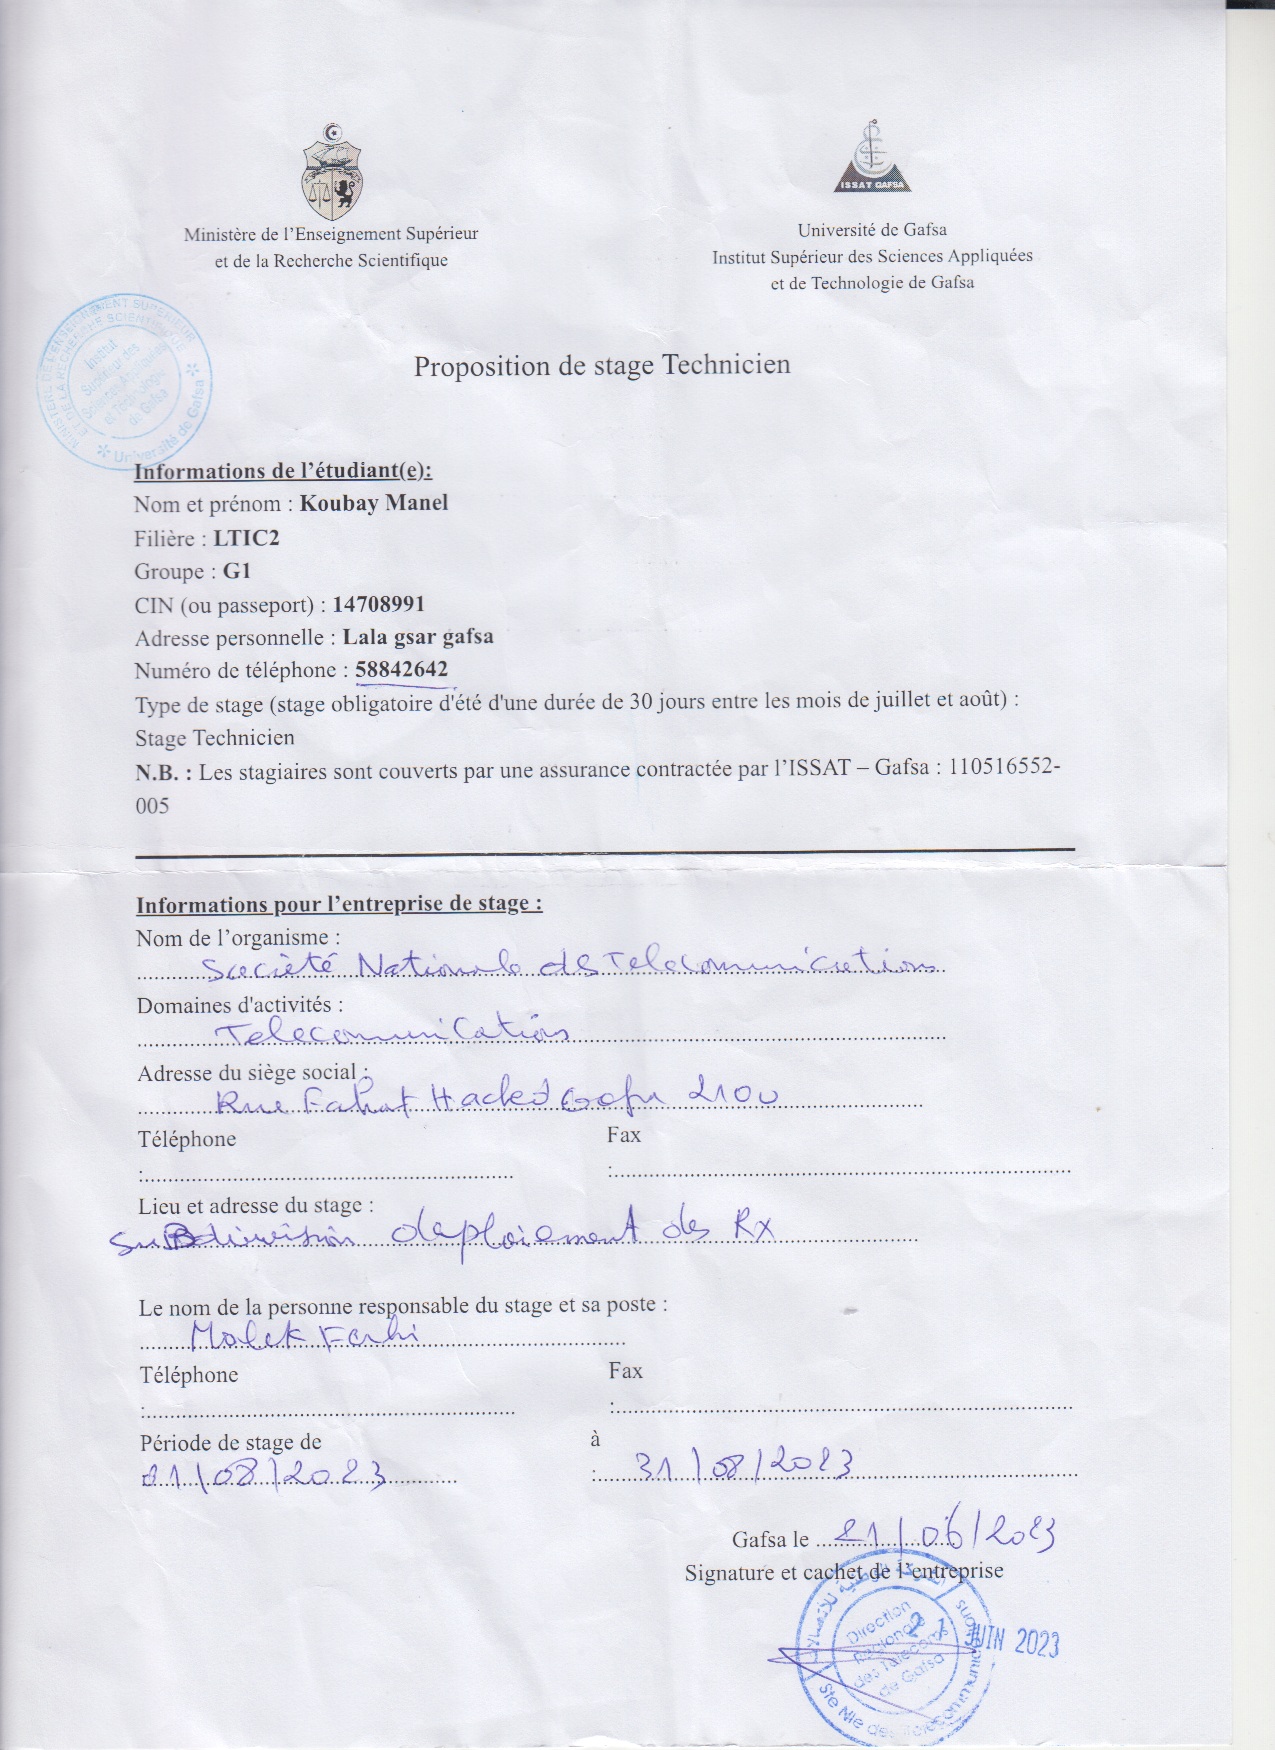 ISSAT GAFSA
Ministère de l'Enseignement Supérieur
et de la Recherche Scientifique
Université de Gafsa
Institut Supérieur des Sciences Appliquées
et de Technologie de Gafsa
MINISTERE DE L'ENSEIGNEMENT SUPERIEUR
ET DE LA RECHERCHE SCIENTIFIQUE
Institut
Supérieur des
Sciences Appliquées
et Technologie
de Gafsa
* Université de Gafsa *
Proposition de stage Technicien
Informations de l'étudiant(e):
Nom et prénom : Koubay Manel
Filière : LTIC2
Groupe : G1
CIN (ou passeport) : 14708991
Adresse personnelle : Lala gsar gafsa
Numéro de téléphone : 58842642
Type de stage (stage obligatoire d'été d'une durée de 30 jours entre les mois de juillet et août) :
Stage Technicien
N.B. : Les stagiaires sont couverts par une assurance contractée par l'ISSAT – Gafsa : 110516552-
005
Informations pour l'entreprise de stage :
Nom de l'organisme :
Société Nationale des Telecomunications
Domaines d'activités :
Telecomunications
Adresse du siège social :
Rue Farhat Hached Gafsa 2100
Téléphone Fax
: :
Lieu et adresse du stage :
SuBdivision deploiement des Rx
Le nom de la personne responsable du stage et sa poste :
Malek Farhi
Téléphone Fax
: :
Période de stage de à
01/08/2023 : 31/08/2023
Gafsa le 21/06/2023
Signature et cachet de l'entreprise
الشركة الوطنية للاتصالات
Direction
Régionale
des Télécoms
de Gafsa
21 JUIN 2023
Ste Nle des Télécommunications